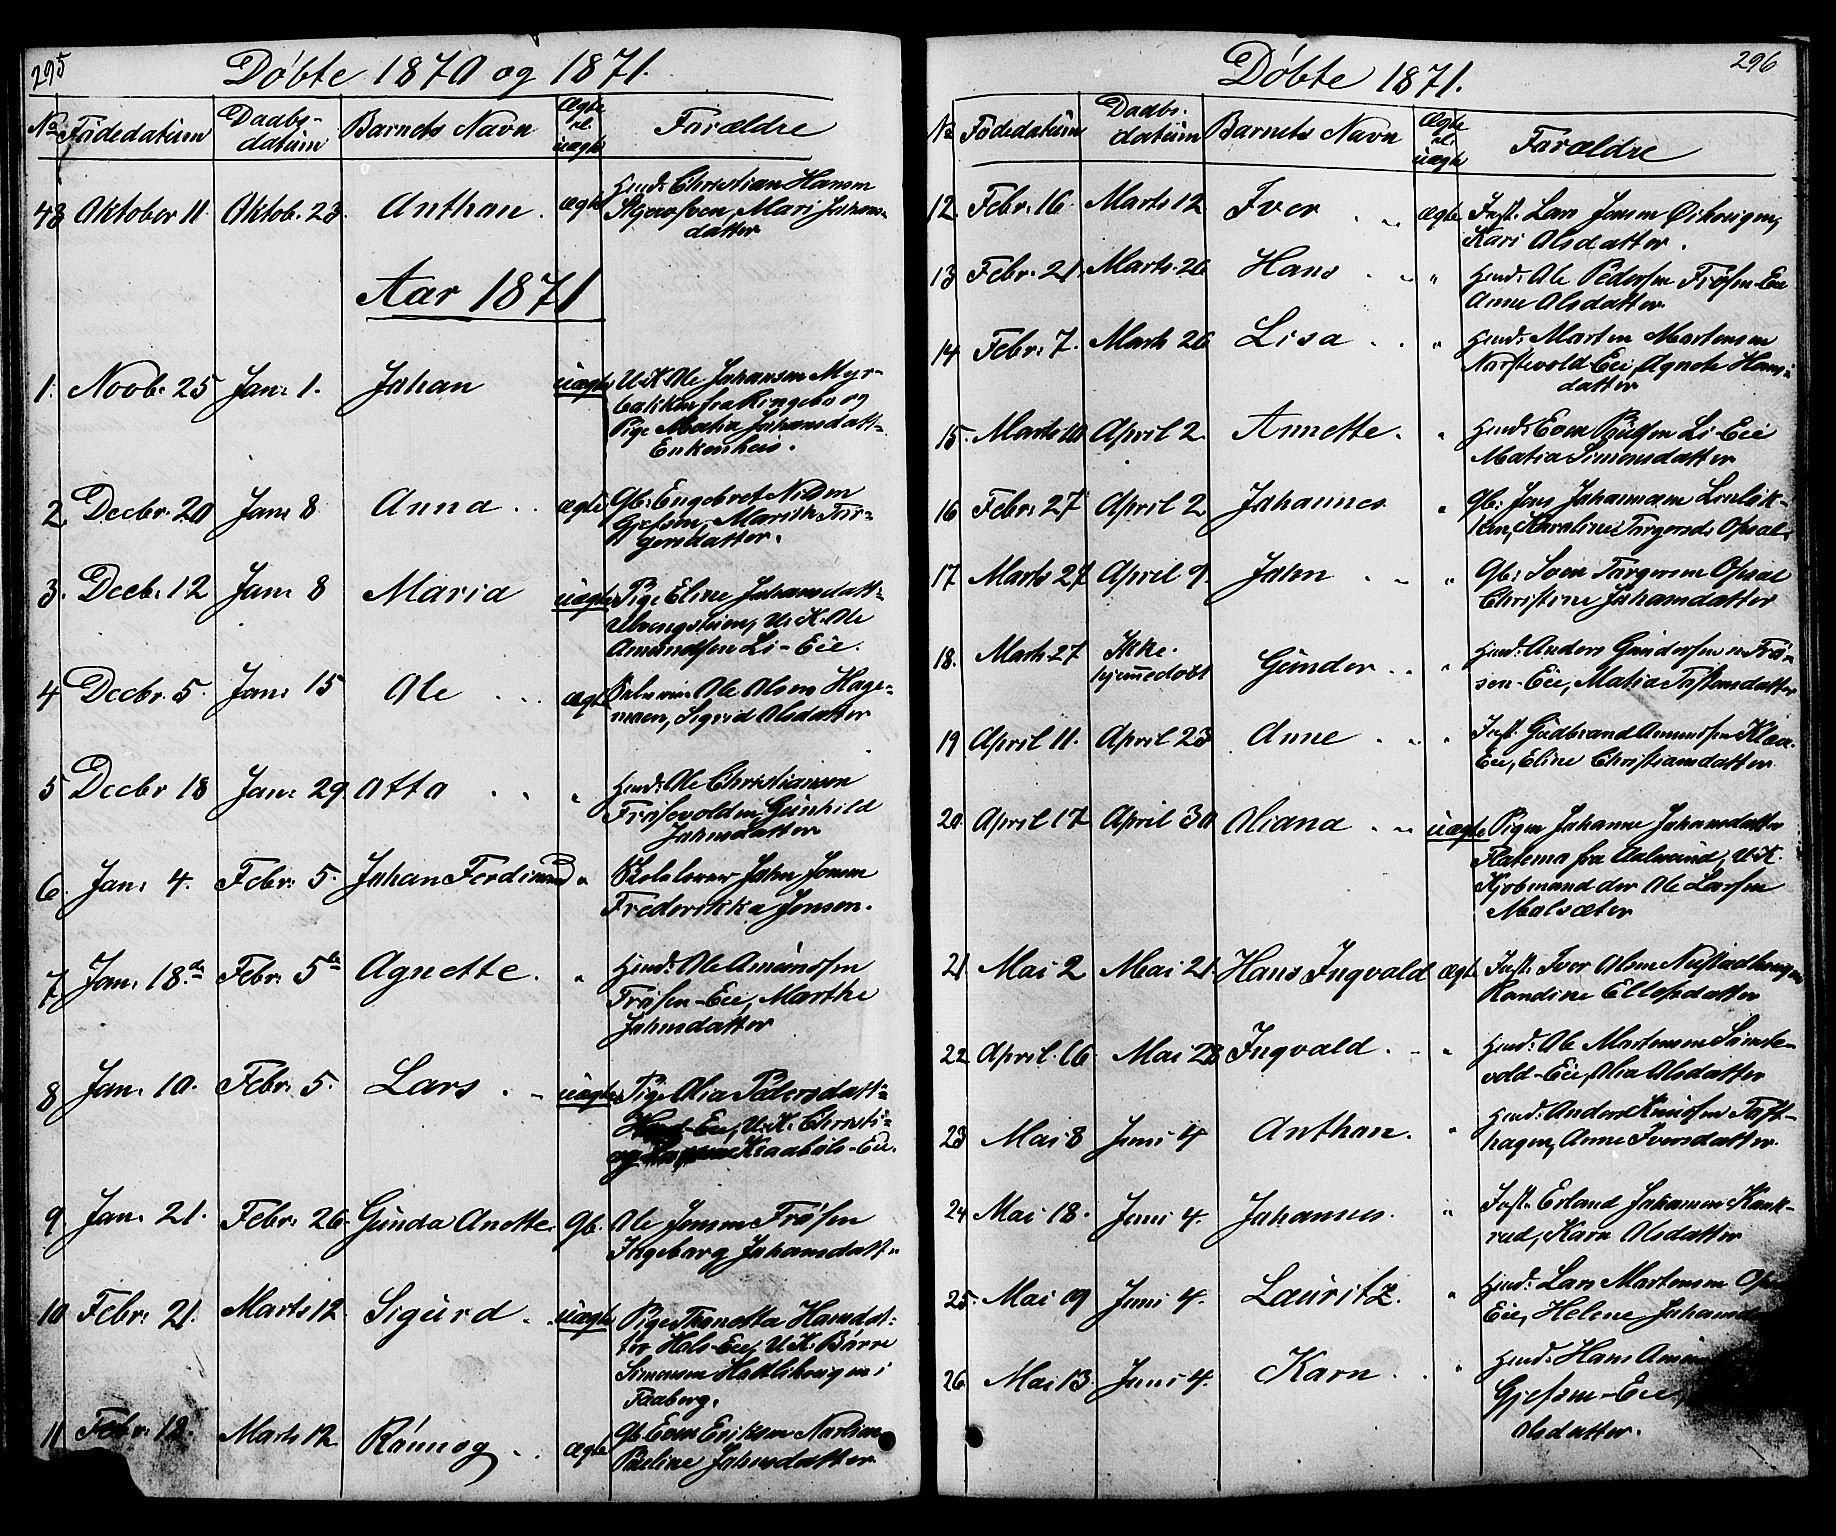 295
Døbte 1870 og 1871.
No. Fødedatum Daabs-datum Barnets Navn Ægte el. uægte Forældre
43 Oktober 11 Oktob. 23. Anthon. ægte Husm. Christian Hansen
Mari Johans-
datter
Aar 1871
1. Novb. 25 Jan: 1. Johan uægte U.K. Ole Johansen Myr-
bakken fra Ringebo og
Pige Mathia Johansdatt-
Enkenhus.
2 Decbr. 20 Jan: 8 Anna ægte Gb: Engebret Nilsen
Gjefsen, Marith Tor-
gersdatter.
3. Decbr. 12 Jan: 8 Maria uægte Pige Eline Johansdatt-
U.K. Ole
Amundsen Li-Eie.
4 Decbr. 5. Jan: 15 Ole ægte Ole Olsen Hage-
moen, Sigrid Olsdatter
5 Decbr 18 Jan: 29 Otto " Husm: Ole Christiansen
Gunhild
Johnsdatter
6. Jan: 4. Febr: 5. Johan Ferdinand " Skolelærer John Jonsen
Frederikka Jensen.
7 Jan: 18de Febr: 5te Agnette. " Husm: Ole Amundsen
Frøisen-Eie, Marthe
Johnsdatter
8 Jan: 10. Febr: 5. Lars uægte Pige Olia Pedersdatt-
-Eie, U.K. Christi-
Kraabøls-Eie.
9 Jan: 21. Febr: 26. Gunda Anette. Gb. Ole Jonsen Frøisen
Ingeborg Johansdatt-
10 Febr: 21. Marts 12. Sigurd uægte Pige Thonetta Hansdat-
ter Hols-Eie, U.K. Børre
Simensen i
Faaberg.
11 Febr: 12. Marts 12 Rønnog ægte Gb. Even Eriksen
Pauline Johnsdatter
296
Døbte 1871.
No Fødedatum Daabs-datum Barnets Navn Ægte el. uægte Forældre
12. Febr: 16. Marts 12 Iver ægte Inst. Lars Jonsen
Kari Olsdatter.
13 Febr: 21. Marts 26 Hans " Husm: Ole Pedersen Frøisen-Eie
Anne Olsdatter
14. Febr: 7. Marts 26 Lisa " Husm: Morten Mortensen
Agnete Hans-
datter
15. Marts 10 April 2. Annette. " Husm: Even Li-Eie
Matia Simensdatter
16 Febr: 27 April 2 Johannes " Gb: Jens Johannesen
Karoline Torgersd. Opsal.
17. Marts 27 April 9. John " Gb: Sven Torgersen Opsal
Christine Johansdatter
18. Marts 27 Ikke. hjemmedøbt Gunder " Husm: Anders Gundersen Frø-
sen-Eie, Matia Tostensdatter
19 April 11. April 23 Anne " Inst. Gudbrand Amundsen
Eie, Eline Christiansdatter.
20. April 17 April 30 Oliana uægte Pigen Johanne Johansdatter
fra Aalesund, U.K.
Kjøbmand der Ole Larsen
Molsæter
21 Mai 2 Mai 21. Hans Ingvald ægte Inst. Iver Olsen
Randine Ellefsdatter
22 April. 16 Mai 28 Ingvald. " Husm: Ole Mortensen
vold-Eie, Olia Olsdatter
23 Mai 8 Juni 4 Anthon. " Husm: Anders Knudsen Toft-
hagen, Anne Iversdatter.
24 Mai 18. Juni 4. Johannes. " Inst. Erland Johansen
rud, Karn Olsdatter
25. Mai 09 Juni 4. Lauritz. " Husm: Lars Mortensen
Eie, Helene
26 Mai 13. Juni 4. Karn. " Husm: Hans
Gjefsen-Eie,
Olsdatter.